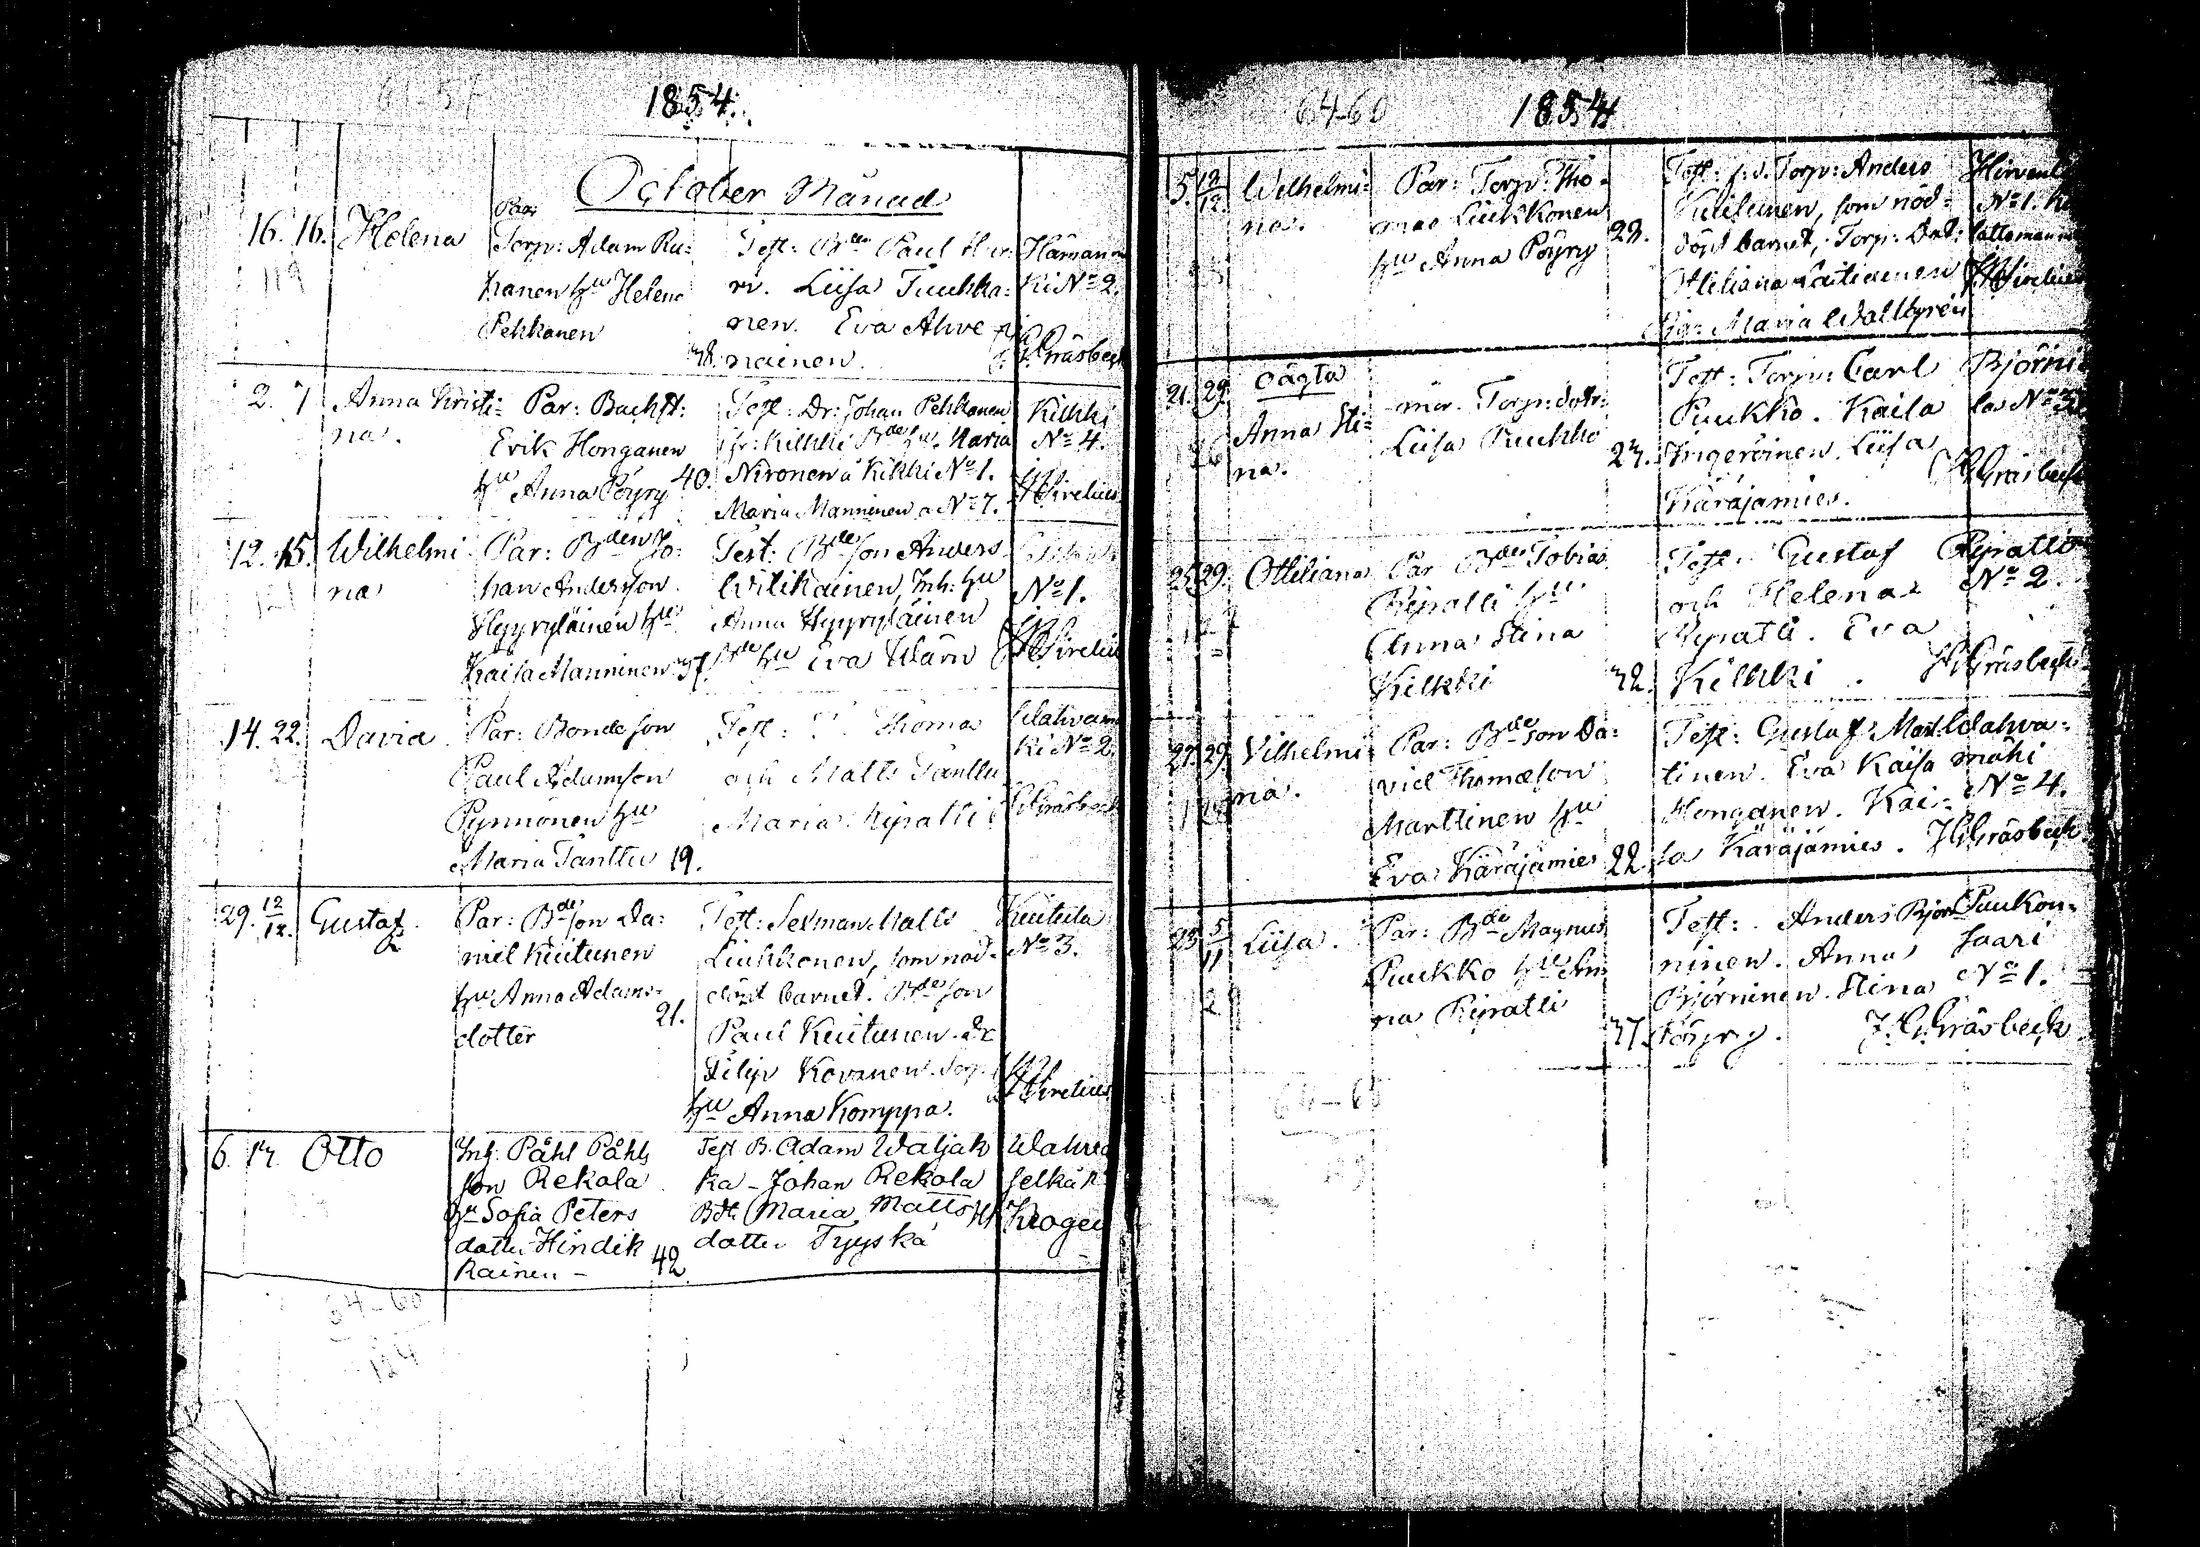 61-57
1854.
October Månad
16. 16. Helena
Par:
Torp: Adam Ru=
hanen hu Helena
Pehkonen
38.
Test: Bden Paul Hur=
ri. Liisa Tuuhka=
nen. Eva Ahve
nainen.
Hämän
ki No 2.
Gräsbeck
119
2. 7 Anna Kristi=
na.
Par: Backst:
Erik Honganen
hu Anna Pöyry 40.
Test: Dr: Johan Pehkonen
fr: Kilkki Bde hu Maria
Nironen a Kikki No 1.
Maria Manninen a No 7.
Kilkki
No 4.
Sirelius
12. 15. Wilhelmi
na
Par: Bden Jo=
han Andersson
Hyyryläinen hu
Kaisa Manninen 37.
Test: Bdeson Anders
Witikainen, Inh: hu
Anna Hyyryläinen
Bde hu Eva Wärn
No 1.
Sirelius
121
14. 22. David
Par: Bondeson
Paul Adamsson
Pynnönen hu
Maria Tanttu 19.
Test: Thomas
och Matts Tanttu
Maria Ripatti
Wahvam
ki No 2
Gräsbeck
29. 12/12. Gustaf.
Par: Bdeson Da=
niel Kuutunen
hu Anna Adams=
dotter
21.
Test: Sexman Matts
Liukkonen, som nöd=
döpt barnet. Bdeson
Paul Kuutunen. Dr
Filip Kovanen. Torp.
hu Anna Komppa.
Kuutula
No 3.
Sirelius
6. 12. Otto
Inh. Påhl Påhls
son Rekola
hu Sofia Peters
dotter Hindik
kainen -
42
Test B. Adam Waljak
ka - Johan Rekola
Bdtr Maria Matts
dotter Tyyskä
Wahva
selkä
Krogeri
64-60
124
64-60
1854
5. 12/12. Wilhelmi=
na.
Par: Torp: Tho=
mas Liukkonen
hu Anna Pöyry
28.
Test: f.d. Torp: Anders
Kuutunen, som nöd=
döpt barnet, Torp: Dot:
Ottiliana Laitiainen
Pig: Maria Wallbgren
Hirvenl
No 1.
Sirelius
21. 29. oägta
Anna Sti=
na.
mor. Torp: dotr:
Liisa Puukko
27.
Test: Torp: Carl
Puukko. Kaisa
Ingeröinen. Liisa
Käräjämies.
Björni
las No 3.
Gräsbeck
25. 29. Ottiliana
Par Bden Tobias
Ripatti hu
Anna Stina
Kilkki
32.
Test: Gustaf
och Helena
Ripatti. Eva
Kilkki.
Ripatti
No 2.
Gräsbeck
27. 29. Vilhelmi
na.
Par: Bdeson Da=
vid Thomæson
Marttinen hu
Eva Käräjämies 22.
Test: Gustaf Mart
tinen. Eva Kaisa
Honganen. Kai=
sa Käräjämies.
Wahva=
mäki
No 4.
Gräsbeck
23 5/11 Liisa.
Par: Bde Magnus
Puukko hu An
na Ripatti
37.
Test: Anders Björ
ninen. Anna
Björninen. Stina
Pöyry.
Puukon=
saari
No 1.
Gräsbeck